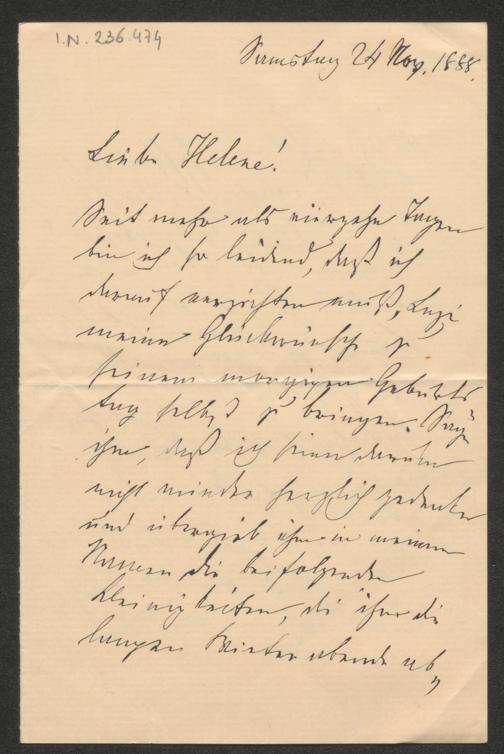 I.N. 236.474
Samstag 24 Nov. 1888.
Liebe Helene!
Seit mehr als vierzehn Tagen
bin ich so leidend, daß ich
darauf verzichten muß,
meine Glückwünsche zu
seinem morgigen Geburts
tag selbst zu bringen. Sage
ihm, daß ich seiner darum
nicht minder herzlich gedenke
und übergieb ihm in meinem
Namen die beifolgenden
Kleinigkeiten, die ihm die
langen Winterabende ab„